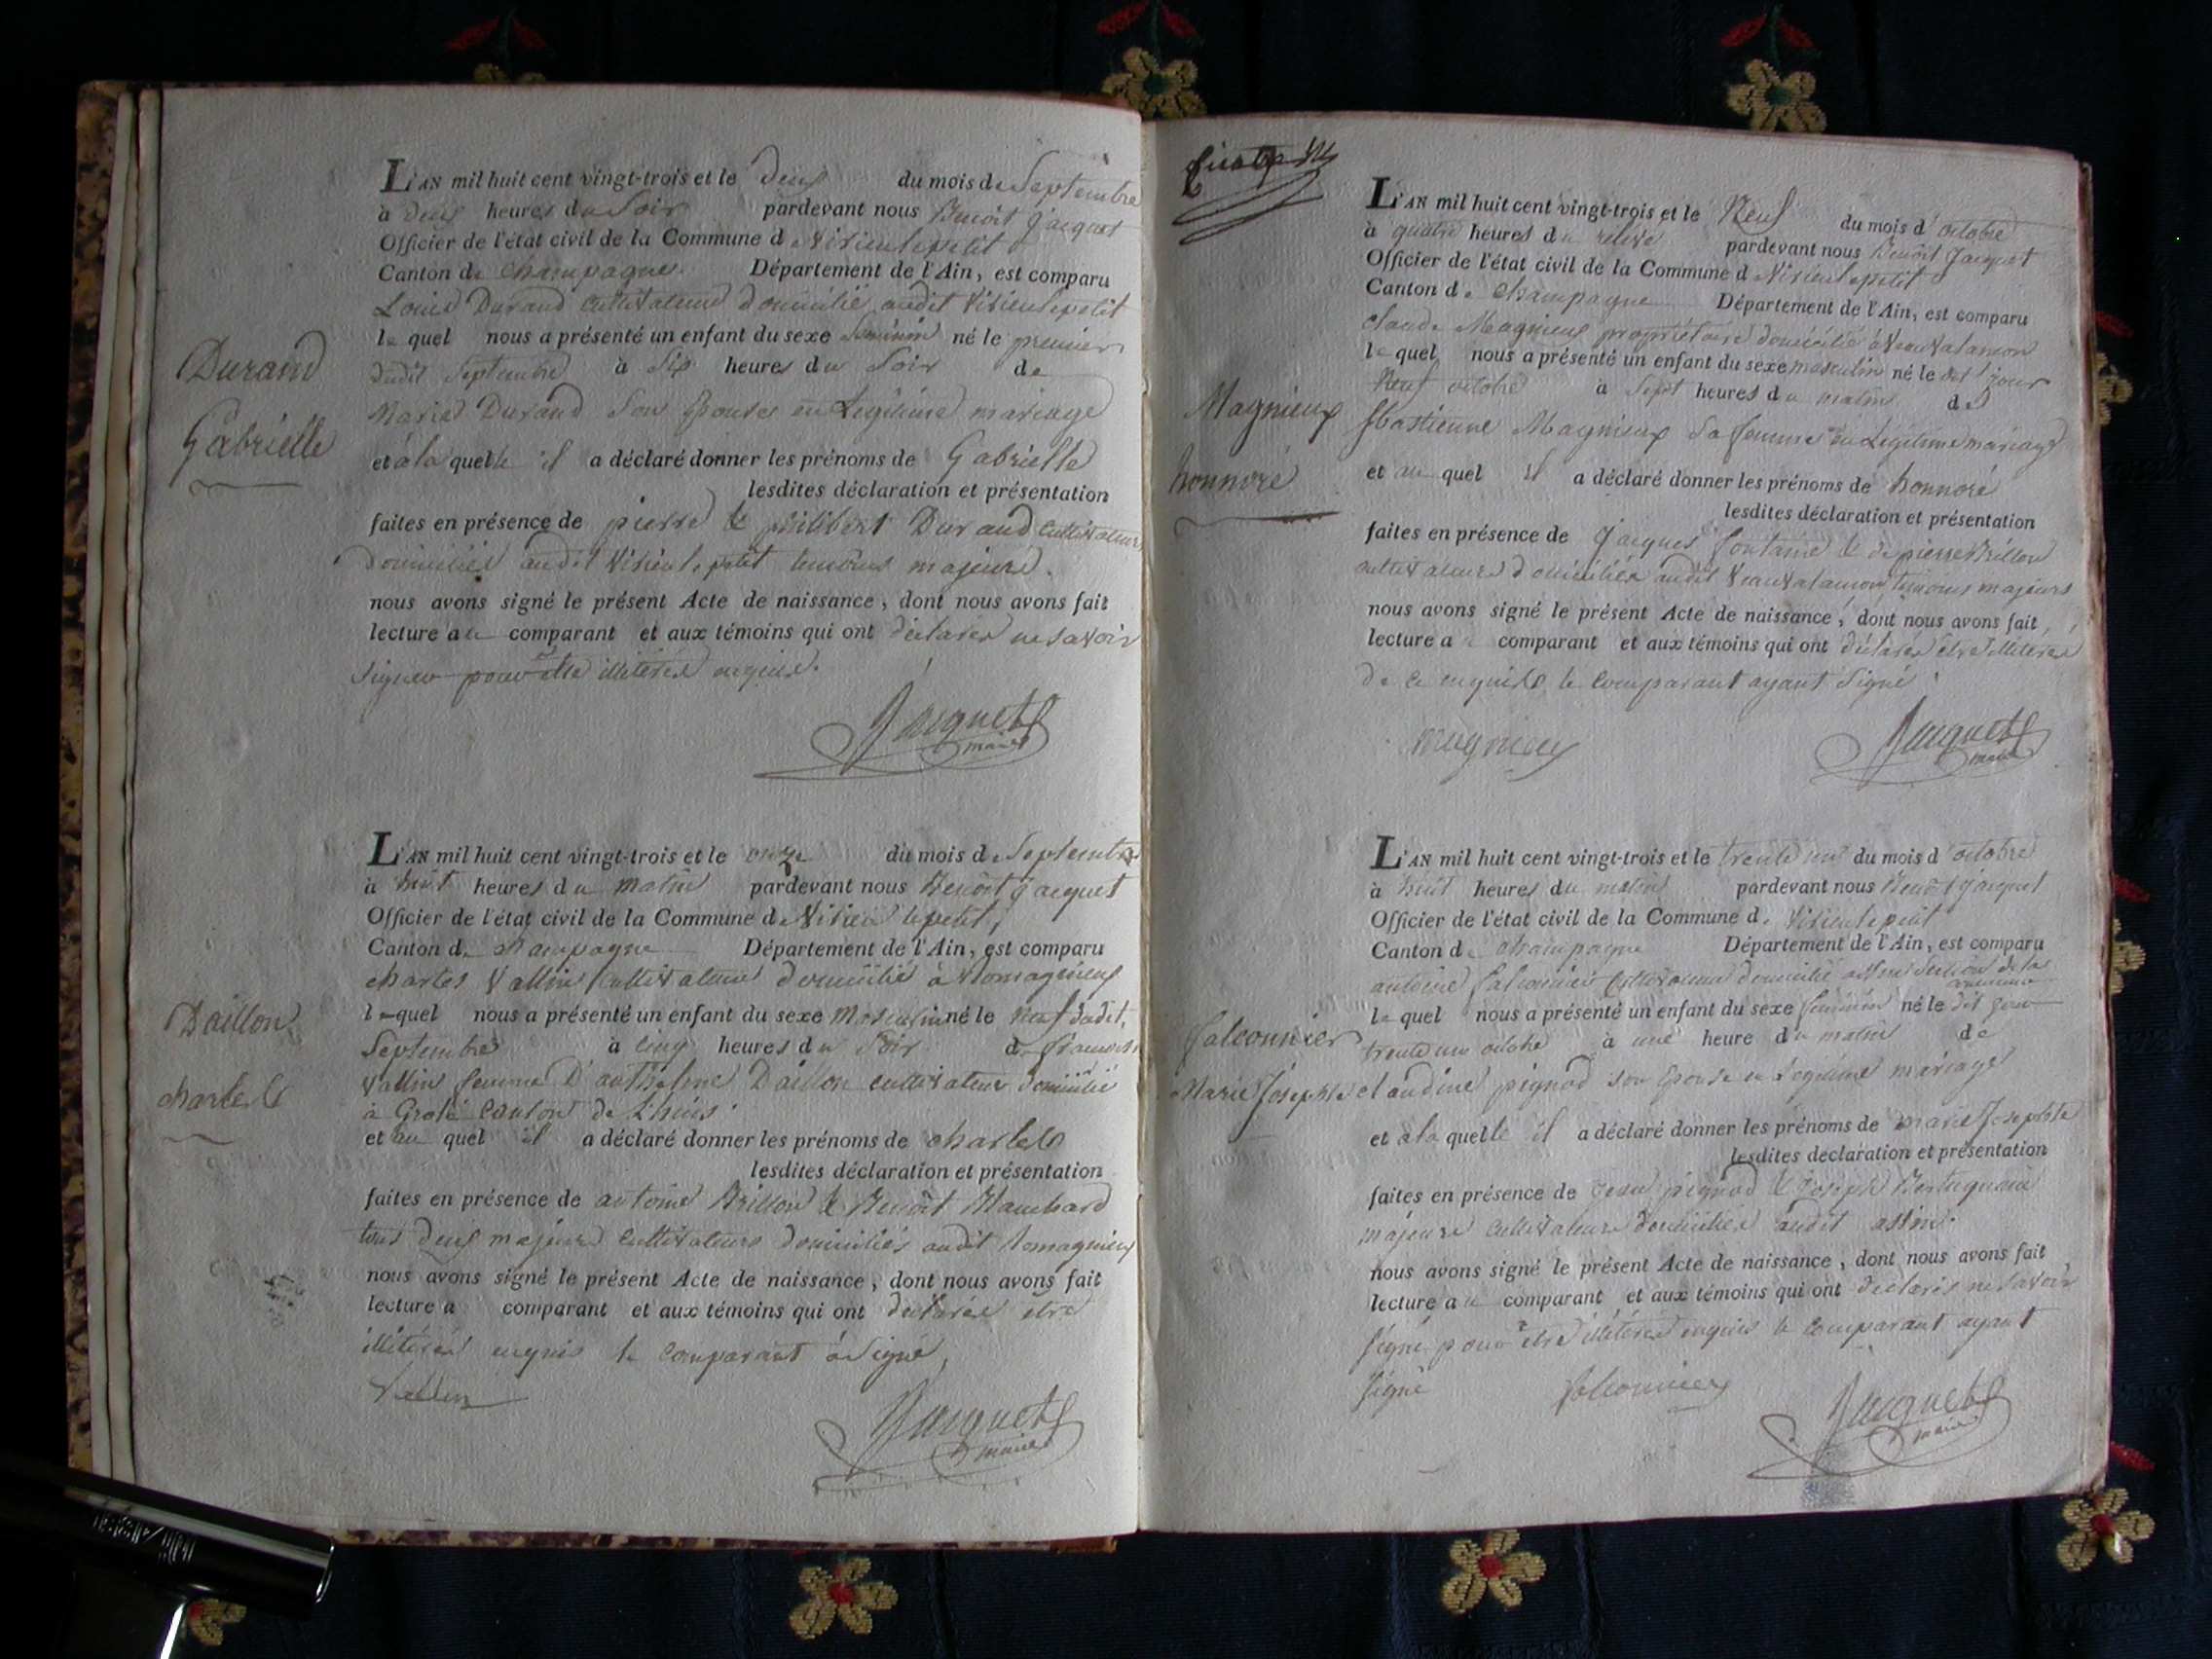 L'AN mil huit cent vingt-trois et le deux du mois de Septembre
à deux heures du Soir pardevant nous Benoit Jacquet
Officier de l'état civil de la Commune de Virieu le petit
Canton de Champagne Département de l'Ain, est comparu
Louis Durand cultivateur domicilié audit Virieu le petit
lequel nous a présenté un enfant du sexe féminin né le premier
dudit Septembre à Six heures du Soir de
Marie Durand Son Epouse en Légitime mariage
et à la quelle il a déclaré donner les prénoms de Gabrielle
lesdites déclaration et présentation
faites en présence de pierre & philibert Durand cultivateurs
domiciliés audit Virieu le petit temoins majeurs.
nous avons signé le présent Acte de naissance, dont nous avons fait
lecture au comparant et aux témoins qui ont déclarés ne savoir
signer pour être illiterés enquis.
Jacquet
maire
Durand
Gabrielle
L'AN mil huit cent vingt-trois et le onze du mois de Septembre
à huit heures du matin pardevant nous Benoit Jacquet
Officier de l'état civil de la Commune de Virieu le petit,
Canton de champagne Département de l'Ain, est comparu
charles Vallin cultivateur domicilié à Romagnieux
lequel nous a présenté un enfant du sexe Masculin né le neuf dudit
Septembre à cinq heures du Soir de
Vallin femme D'anthelme Daillon cultivateur domicilié
à Grolé Canton de Lhuis.
et au quel il a déclaré donner les prénoms de charles
lesdites déclaration et présentation
faites en présence de antoine Brillon & Benoit Blanchard
tous deux majeurs cultivateurs domiciliés audit Romagnieux
nous avons signé le présent Acte de naissance, dont nous avons fait
lecture a comparant et aux témoins qui ont déclarés être
illiterés enquis le comparant a Signé,
Vallin
Jacquet
maire
Daillon
charles
L'AN mil huit cent vingt-trois et le Neuf du mois d'octobre
à quatre heures du pardevant nous Benoit Jacquet
Officier de l'état civil de la Commune de Virieu le petit
Canton de Champagne Département de l'Ain, est comparu
claude Magnieux propriétaire domicilié à
lequel nous a présenté un enfant du sexe masculin né le dit jour
Neuf octobre à Sept heures du matin de
Magnieux Sa femme en Legitime mariage
et au quel il a déclaré donner les prénoms de honnoré
lesdites déclaration et présentation
faites en présence de Jacques fontaine & de pierre Brillon
cultivateurs domiciliés audit temoins majeurs
nous avons signé le présent Acte de naissance, dont nous avons fait
lecture a comparant et aux témoins qui ont déclarés être illiterés
de ce enquis le comparant ayant Signé
magnieux
Jacquet
maire
Magnieux
honnoré
L'AN mil huit cent vingt-trois et le trente un du mois d'octobre
à huit heures du matin pardevant nous Benoit Jacquet
Officier de l'état civil de la Commune de Virieu le petit
Canton de Champagne Département de l'Ain, est comparu
antoine falconnier cultivateur domicilié Section de la
lequel nous a présenté un enfant du sexe féminin né le dit jour
trente un octobre à une heure du matin de
claudine pignod son Epouse en Légitime mariage
et à la quelle il a déclaré donner les prénoms de marie Josephte
lesdites déclaration et présentation
faites en présence de Jean pignod & Joseph
majeurs cultivateurs domiciliés audit
nous avons signé le présent Acte de naissance, dont nous avons fait
lecture au comparant et aux témoins qui ont declarés ne savoir
signé pour être illiterés enquis le comparant ayant
signé falconnier
Jacquet
maire
falconnier
Marie Josephte